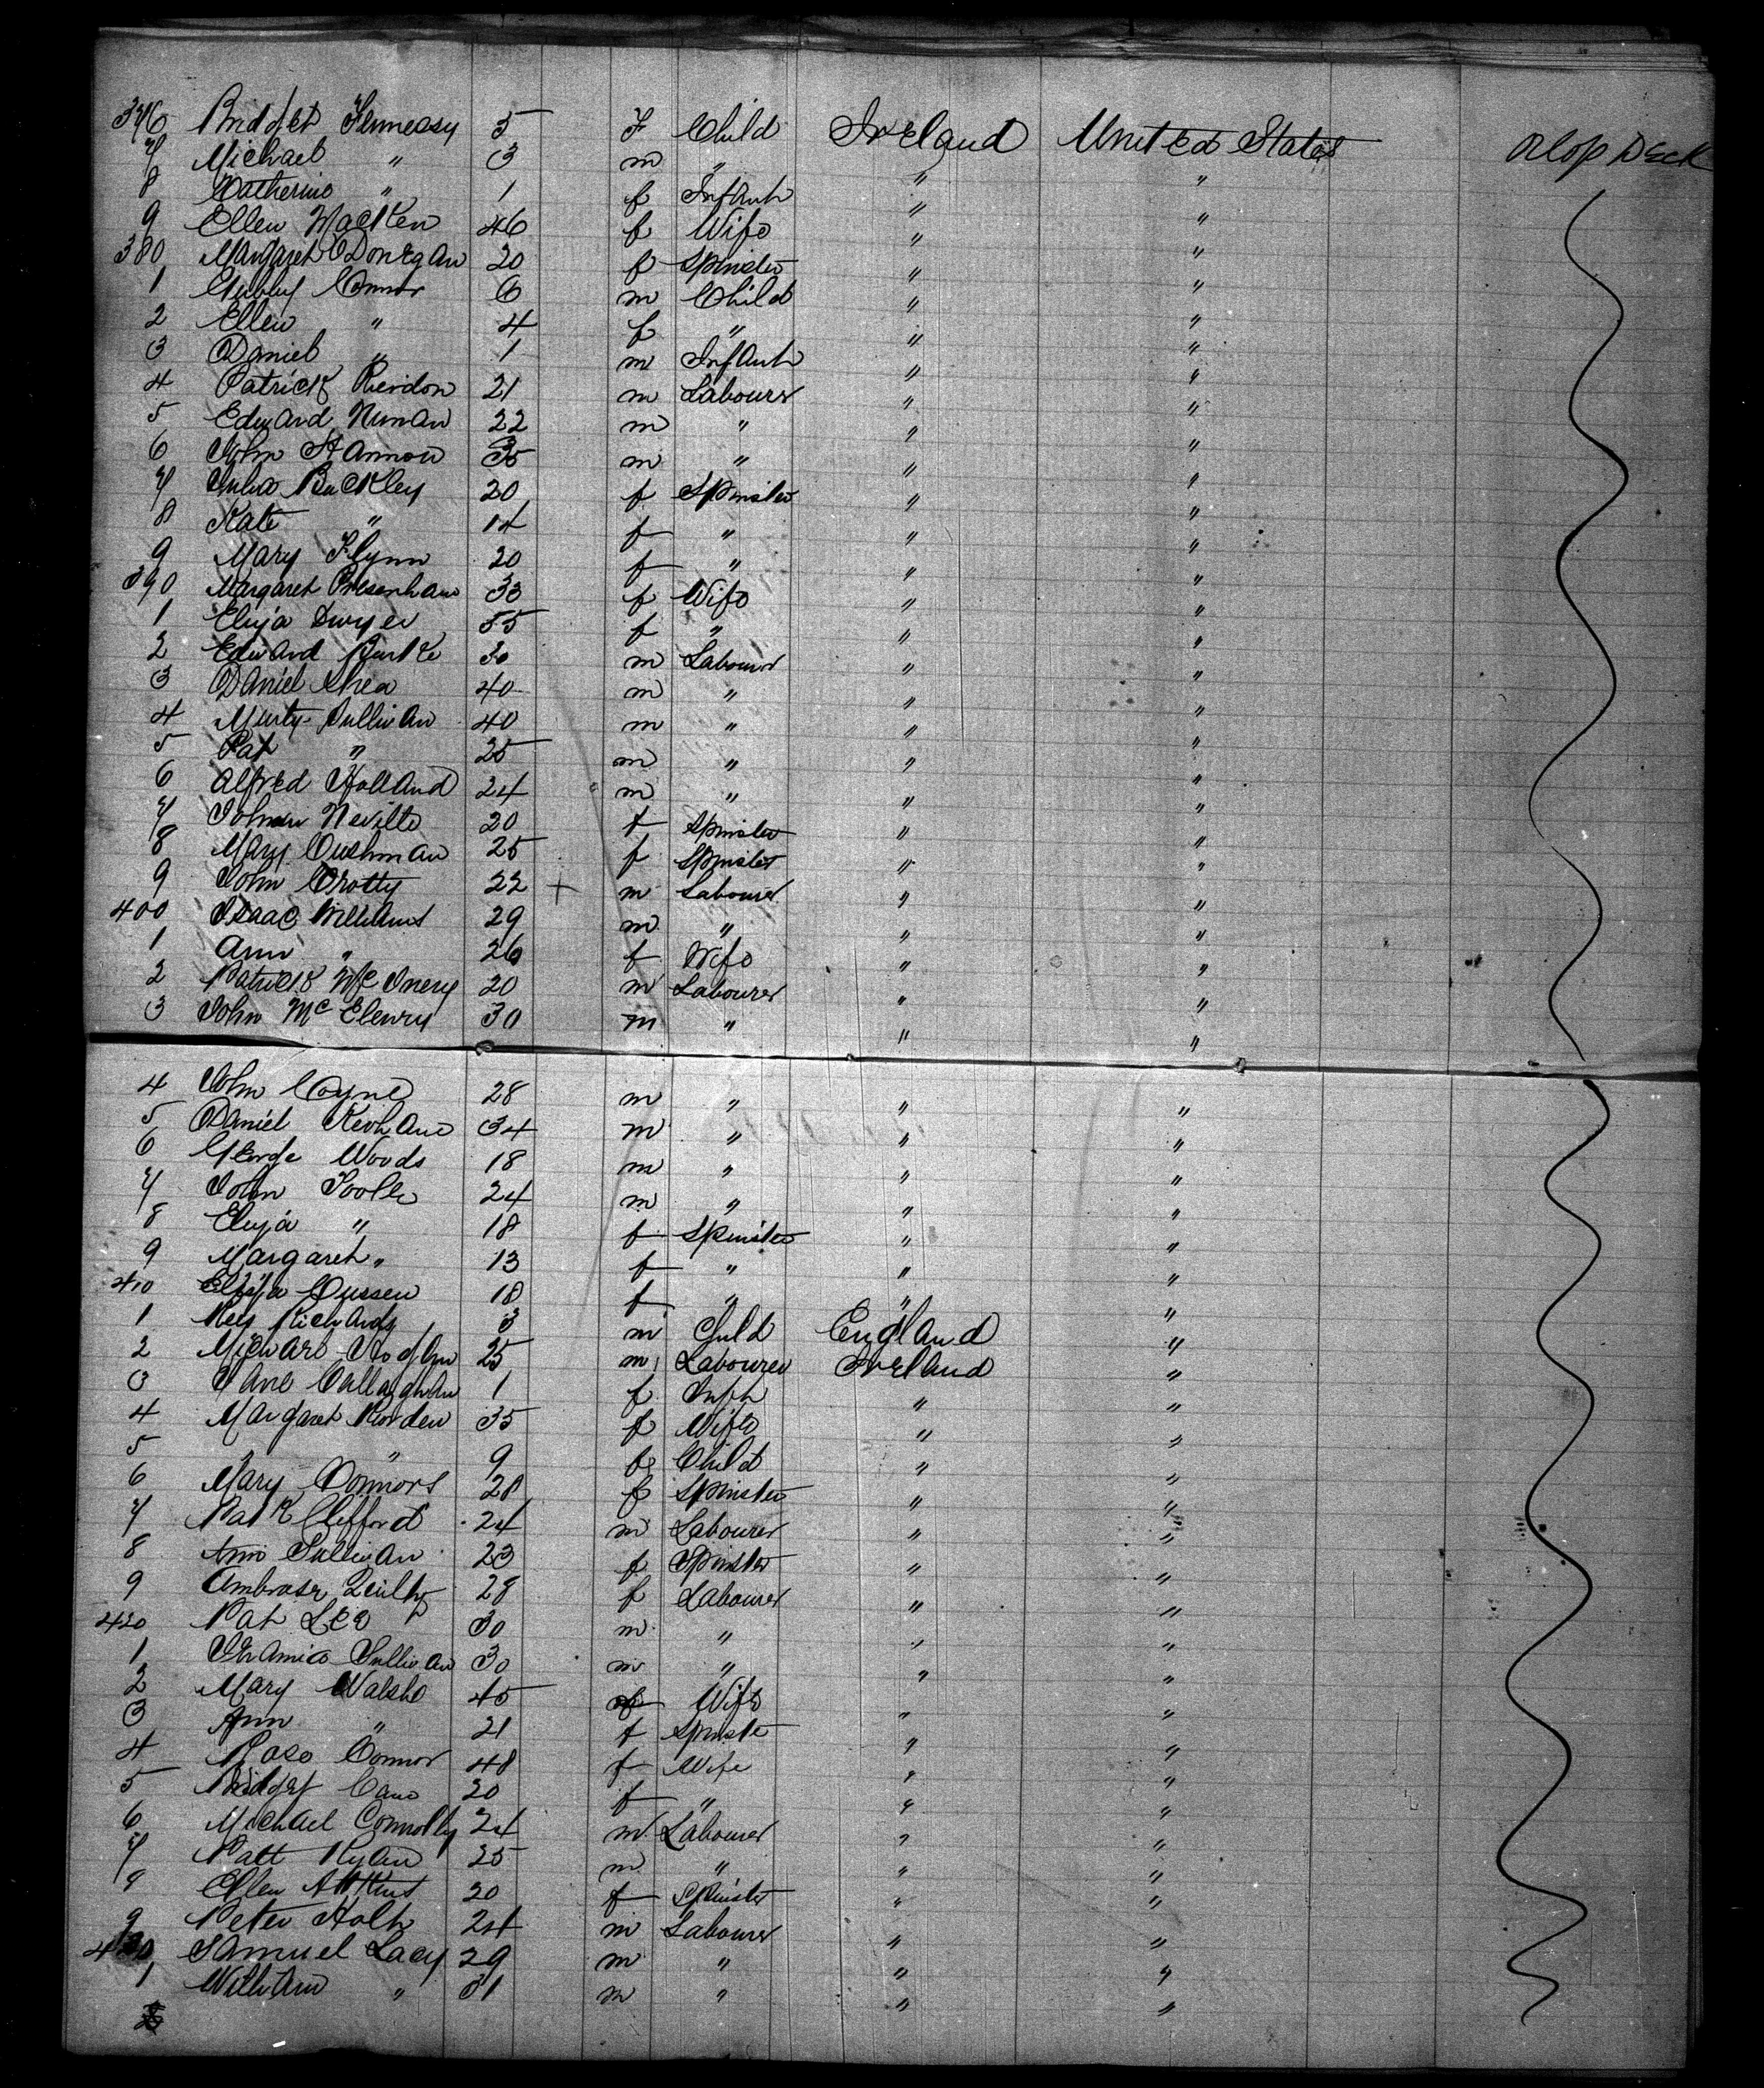 376 Bridget Fennessy 5 F Child Ireland United States Orlop Deck
7 Michael " 3 m " " "
8 Catherine " 1 f Infant " "
9 Ellen Macken 46 f Wife " "
380 Margaret ODonegan 20 f Spinster " "
1 Connor 6 m Child " "
2 Ellen " 4 f " " "
3 Daniel " 1 m Infant " "
4 Patrick Reridon 21 m Labourer " "
5 Edward Nunan 22 m " " "
6 John Hannon 35 m " " "
7 Julia Buckley 20 f Spinster " "
8 Kate " 14 f " " "
9 Mary Flynn 20 f " " "
390 Margaret Bresenhan 33 f Wife " "
1 Eliza Dwyer 55 f " " "
2 Edward Burke 30 m Labourer " "
3 Daniel Shea 40 m " " "
4 Murty Sullivan 40 m " " "
5 Pat " 25 m " " "
6 Alfred Holland 24 m " " "
7 Neville 20 f Spinster " "
8 Mary Cushman 25 f Spinster " "
9 John Crotty 22 + m Labourer " "
400 Isaac Williams 29 m " " "
1 Ann " 26 f Wife " "
2 Patrick McInery 20 m Labourer " "
3 John McElenry 30 m " " "
4 John Coyne 28 m " " "
5 Daniel Keohane 34 m " " "
6 George Woods 18 m " " "
7 John Toole 24 m " " "
8 Eliza " 18 f Spinster " "
9 Margaret " 13 f " " "
410 Eliza Cussen 18 f " " "
1 Rees Richards 3 m Child England "
2 Michael Hogan 25 m Labourer Ireland "
3 Jane Callaghan 1 f Inft " "
4 Margaret Riorden 35 f Wife " "
5 " " 9 f Child " "
6 Mary Connors 28 f Spinster " "
7 Patk Clifford 24 m Labourer " "
8 Ann Sullivan 23 f Spinster " "
9 Ambrose Quilty 28 f Labourer " "
420 Pat Lee 30 m " " "
1 Sullivan 30 m " " "
2 Mary Walsh 45 f Wife " "
3 Ann " 21 f Spinste " "
4 Rose Connor 48 f Wife " "
5 Bridget Cane 20 f " " "
6 Michael Connolly 24 m Labourer " "
7 Patt Ryan 25 m " " "
8 Ellen Attkins 20 f Spinster " "
9 Peter Holt 24 m Labourer " "
430 Samuel Lacy 29 m " " "
1 William " 31 m " " "